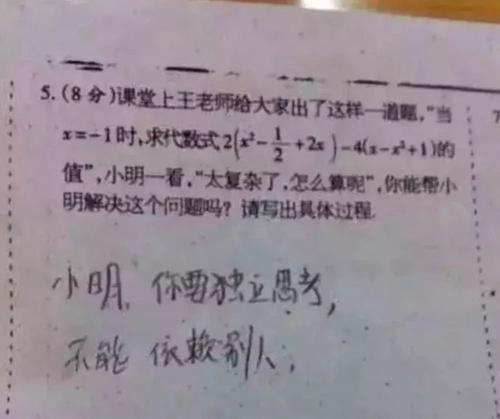 5.(8分)课堂上王老师给大家出了这样一道题,“当
x=-1时,求代数式2(x²-1/2+2x)-4(x-x²+1)的
值”,小明一看,“太复杂了,怎么算呢”,你能帮小
明解决这个问题吗?请写出具体过程.
小明,你要独立思考,
不能依赖别人.
7